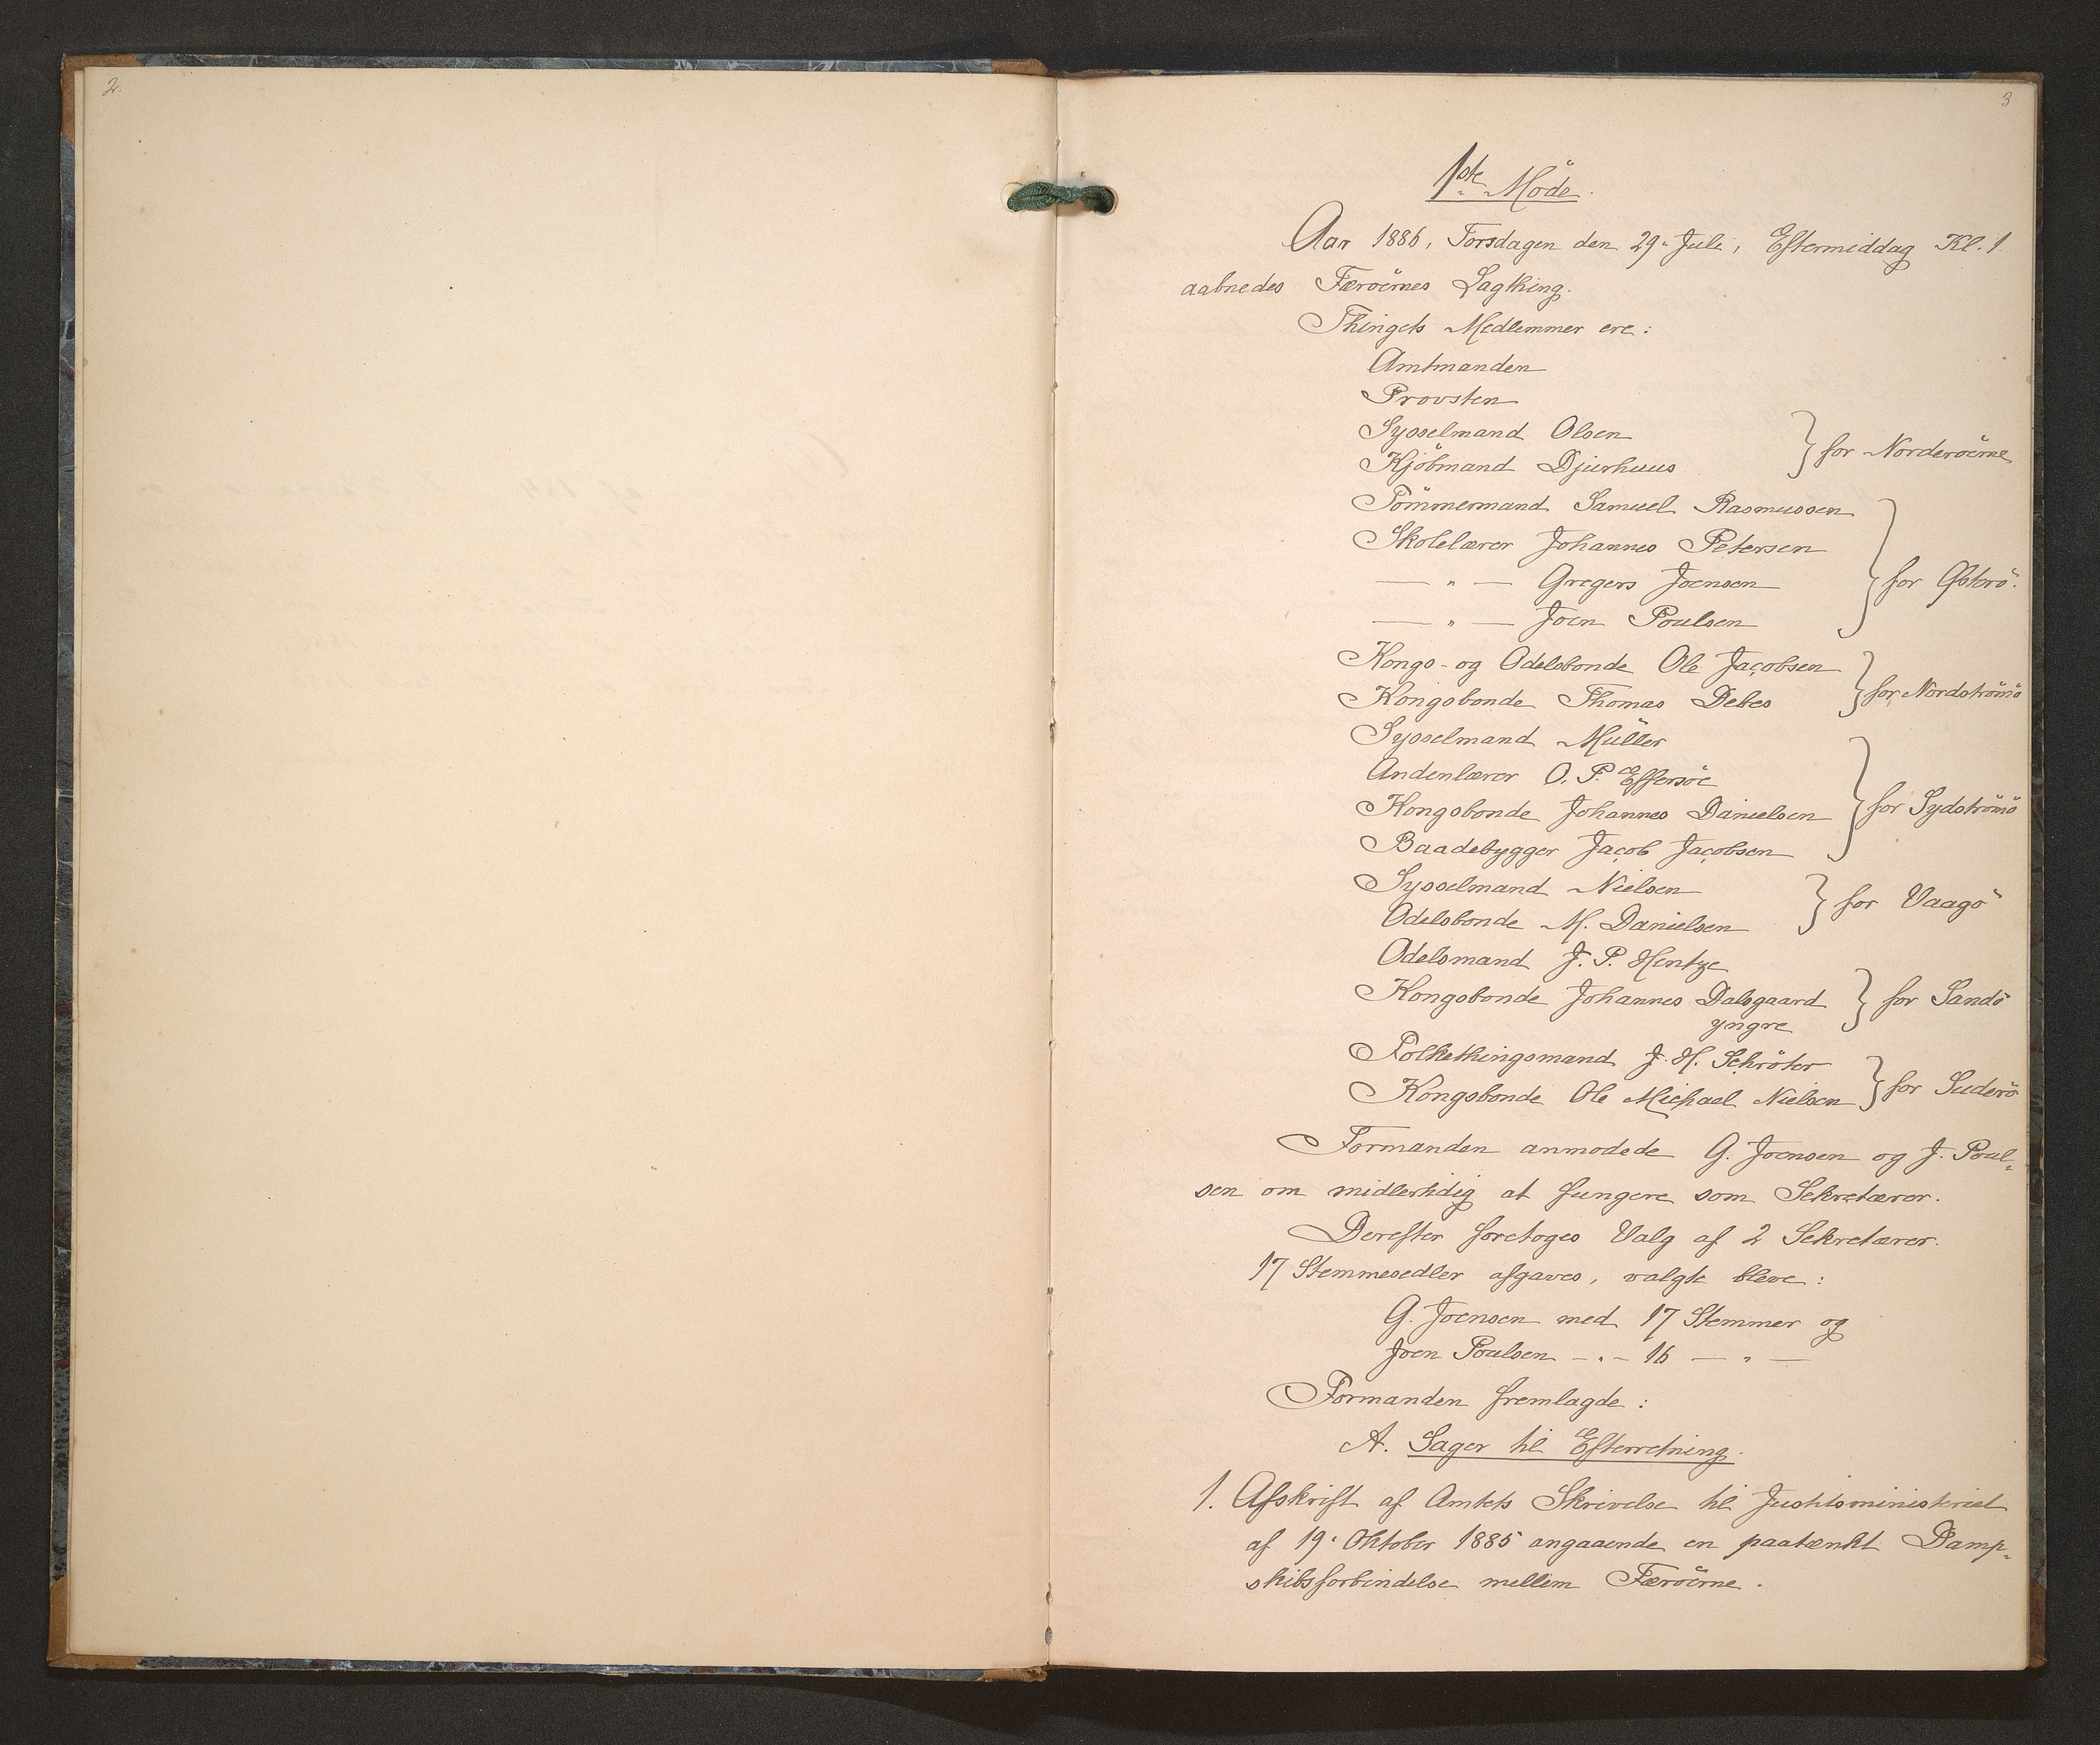 2.
3
1ste Möde.
Aar 1886, Torsdagen den 29. Juli, Eftermiddag Kl. 1
aabnedes Færöernes Lagthing.
Thingets Medlemmer ere:
Amtmanden
Provsten
Sysselmand Olsen
Kjöbmand Djurhuus
} for Norderöerne
Tömmermand Samuel Rasmussen
Skolelærer Johannes Petersen
— " — Gregers Joensen
— " — Joen Poulsen
} for Österö.
Kongs- og Odelsbonde Ole Jacobsen
Kongsbonde Thomas Debes
} for Nordströmö
Sysselmand Müller
Andenlærer O. P. Effersöe
Kongsbonde Johannes Danielsen
Baadebygger Jacob Jacobsen
} for Sydströmö
Sysselmand Nielsen
Odelsbonde M. Danielsen
} for Vaagö
Odelsmand J. P. Hentze
Kongsbonde Johannes Dalsgaard
yngre
} for Sandö
Folkethingsmand J. H. Schröter
Kongsbonde Ole Michael Nielsen
} for Suderö
Formanden anmodede G. Joensen og J. Poul-
sen om midlertidig at fungere som Sekretærer.
Derefter foretoges Valg af 2 Sekretærer.
17 Stemmesedler afgaves, valgte bleve:
G. Joensen med 17 Stemmer og
Joen Poulsen — " — 16 — " —
Formanden fremlagde:
A. Sager til Efterretning.
1. Afskrift af Amtets Skrivelse til Justitsministeriet
af 19. Oktober 1885 angaaende en paatænkt Damp-
skibsforbindelse mellem Færöerne.